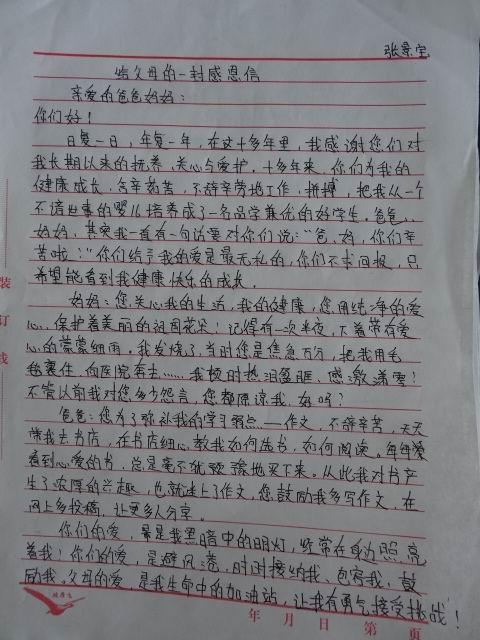 张景宝
给父母的一封感恩信
亲爱的爸爸妈妈：
你们好！
日复一日，年复一年，在这十多年里，我感谢您们对
我长期以来的抚养、关心与爱护。十多年来，你们为我的
健康成长，含辛茹苦，不辞辛劳地工作、拼搏，把我从一个
不谙世事的婴儿培养成了一名品学兼优的好学生。爸爸、
妈妈，其实我一直有一句话要对你们说：“爸、妈，你们辛
苦啦！”你们给予我的爱是最无私的，你们不求回报，只
希望能看到我健康快乐的成长。
妈妈：您关心我的生活，我的健康，您用纯净的爱
心，保护着美丽的祖国花朵！记得有一次半夜，下着带有爱
心的蒙蒙细雨。我发烧了，当时您是焦急万分，把我用毛
毯裹住，向医院奔去……我顿时热泪盈眶、感激涕零！
不管以前我对您多少怨言，您都原谅我，好吗？
爸爸：您为了弥补我的学习弱点——作文，不辞辛苦，天天
带我去书店，在书店细心教我如何选书，如何阅读。每每
看到心爱的书，总是毫不犹豫地买下来。从此我对书产
生了浓厚的兴趣，也就迷上了作文，您鼓励我多写作文，在
网上多投稿，让更多人分享。
你们的爱，是我黑暗中的明灯，经常在身边照亮
着我！你们的爱，是避风港，时时接纳我、包容我、鼓
励我。父母的爱，是我生命中的加油站，让我有勇气接受挑战！
装
订
线
年 月 日 第 页